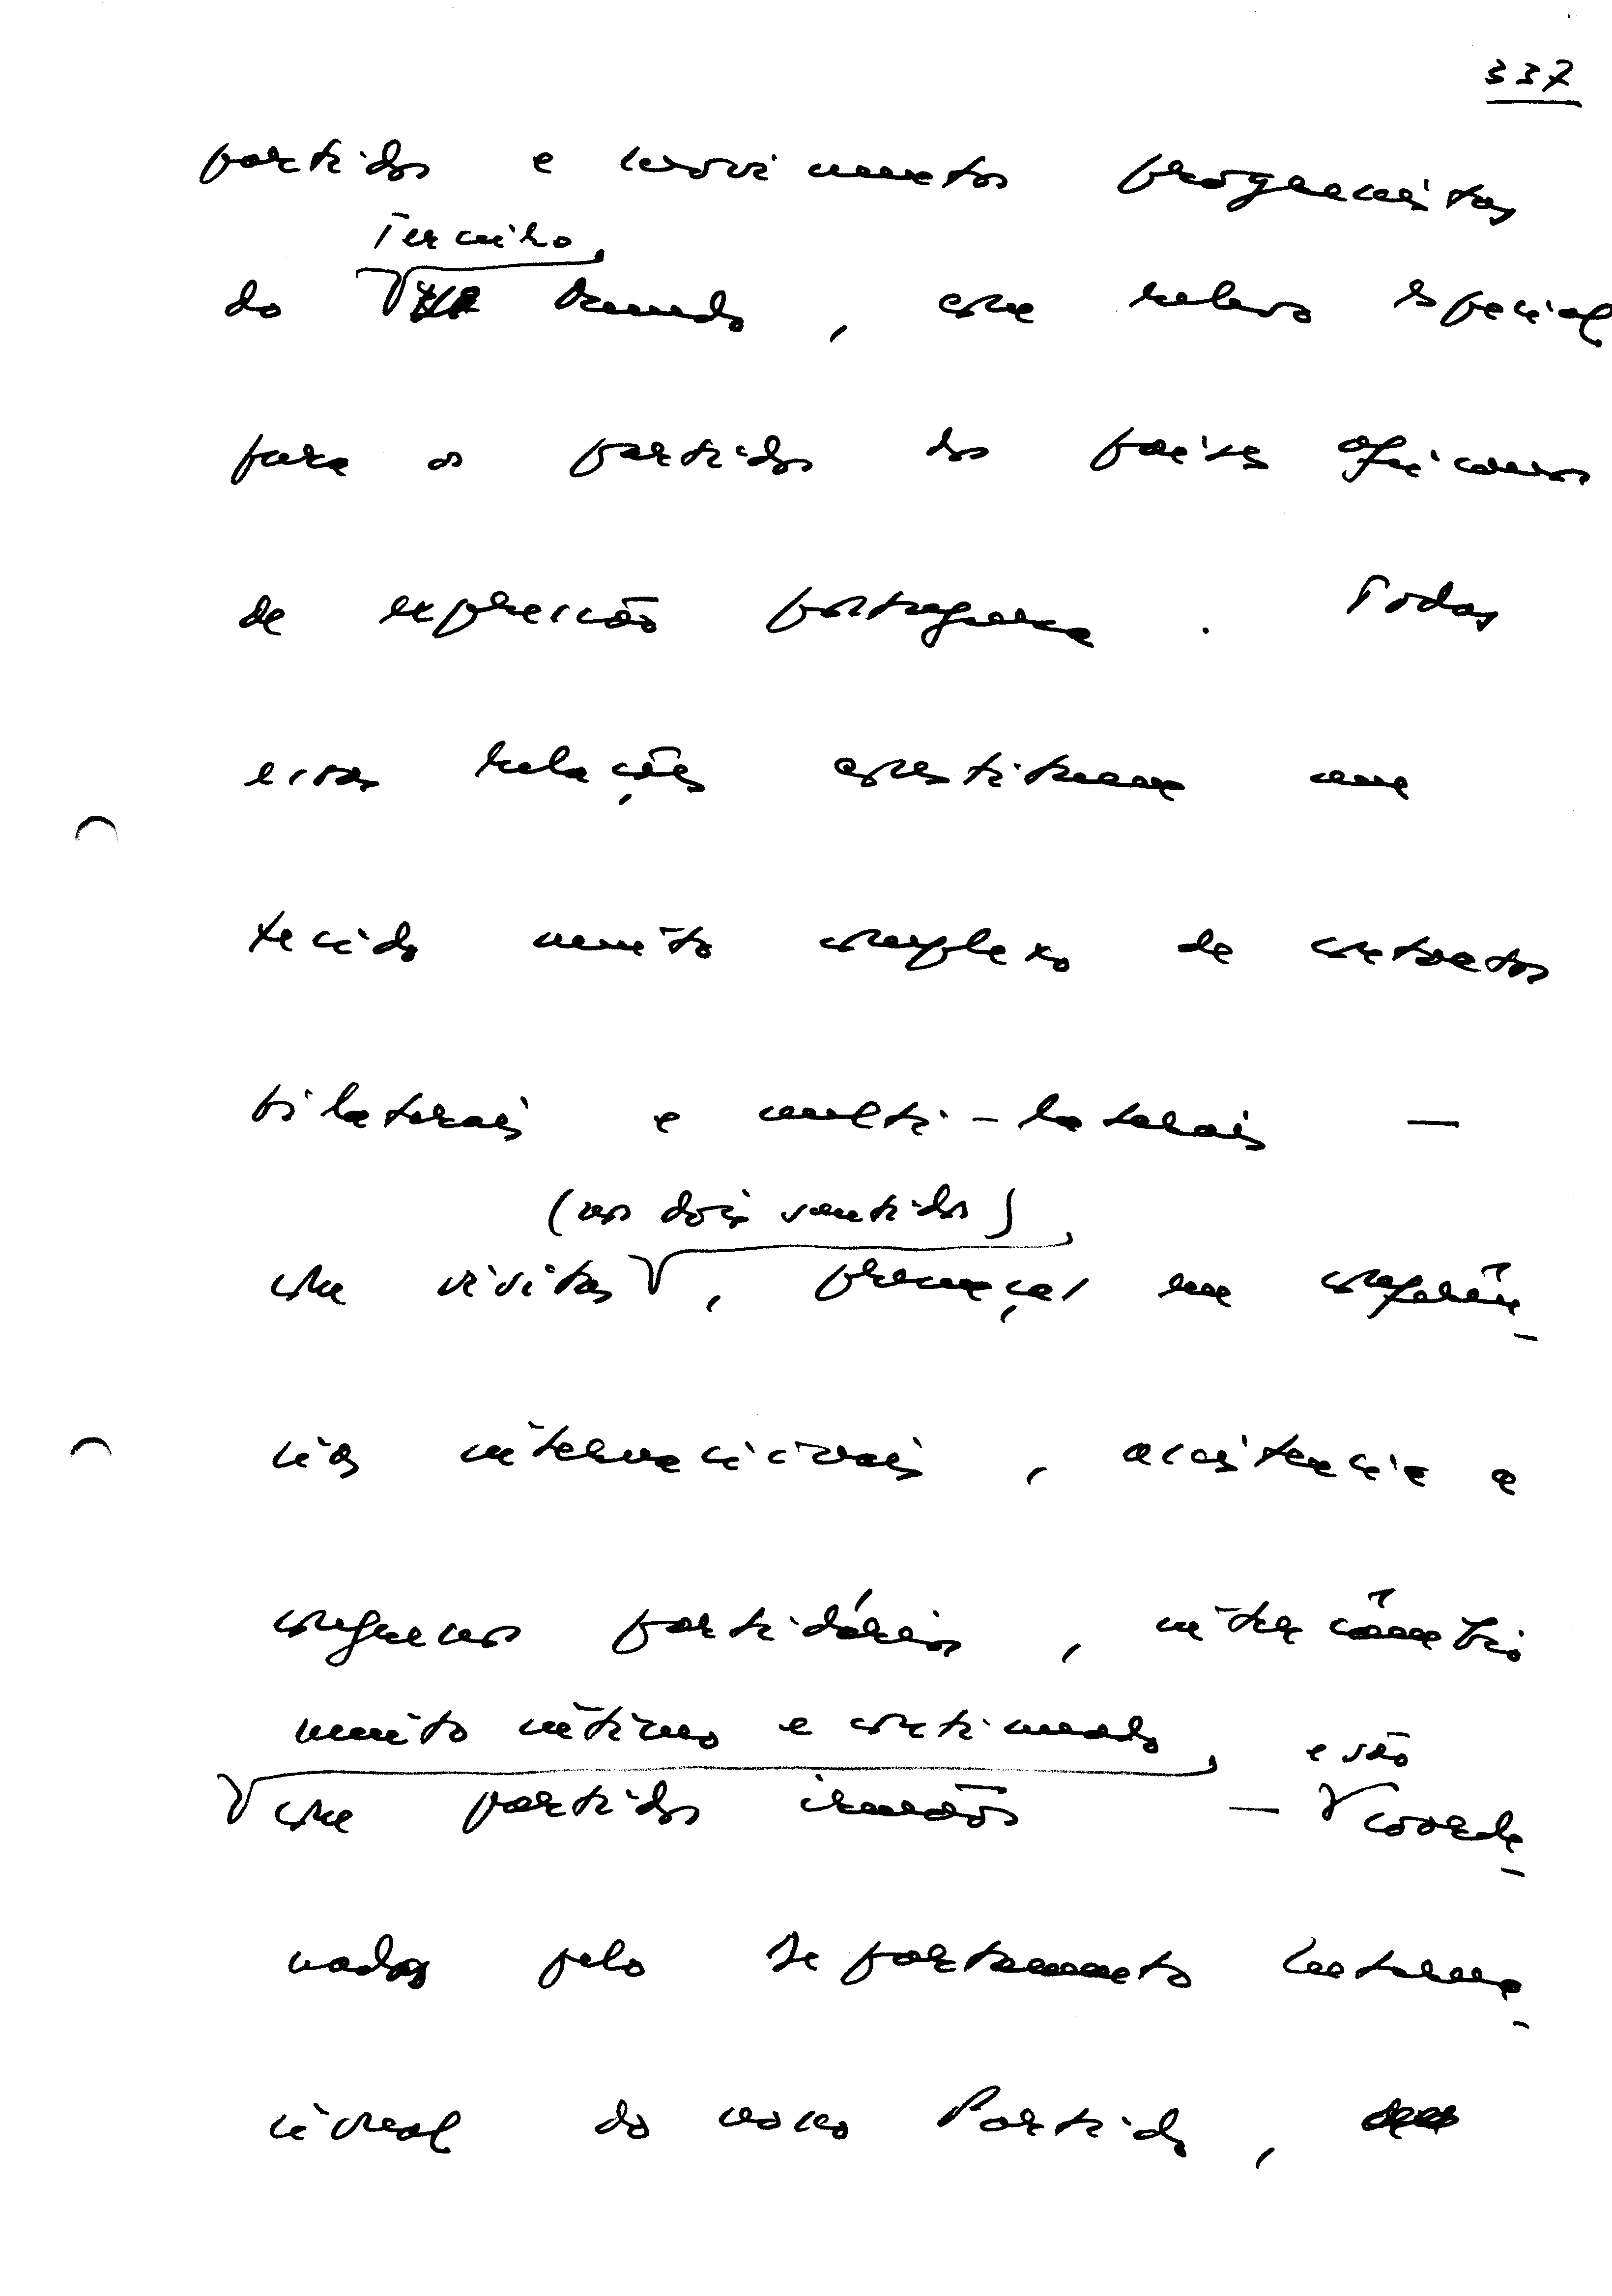 337
partidos e movimentos progressistas
Terceiro
do Mundo, com relevo especial
para os partidos dos países africanos
de expressão portuguesa. Todas
essas relações constituem um
tecido muito complexo de contactos
bilaterais e multi-laterais —
(nos dois sentidos)
com visitas, presenças em conferên-
cias internacionais, assistência a
congressos partidários, intercâmbio
muito íntimo e continuado
e são
com partidos irmãos — coorde-
nadas pelo Departamento Interna-
cional do nosso Partido,